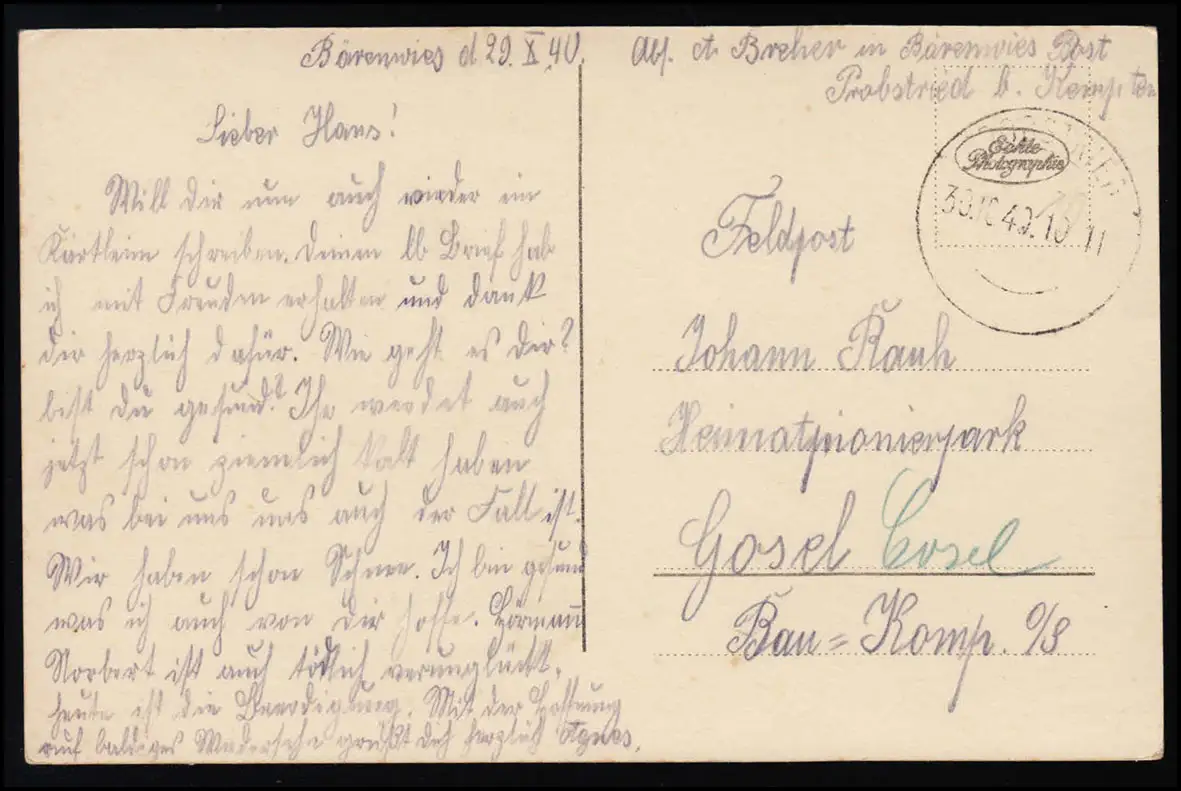 Bärenwies d 29. X. 40.
Lieber Hans!
Will dir nun auch wieder ein
Kärtlein schreiben. Deinen lb Brief hab
ich mit Freuden erhalten und dank
dir herzlich dafür. Wie geht es Dir?
bist du gesund? Ihr werdet auch
jetzt schon ziemlich kalt haben
was bei uns uns auch der Fall ist.
Wir haben schon Schnee. Ich bin gesund
was ich auch von dir hoffe. Hörmann
Norbert ist auch tödlich verunglückt.
heute ist die Beerdigung. Mit der Hoffnung
auf baldiges Wiedersehn grüßt dich herzlich Agnes.
Abs. A. Breher in Bärenwies Post
Probstried b. Kempten
Echte
Photographie
30.10.40.10 11
Feldpost
Johann Rauh
Heimatpionierpark
Gosel Cosel
Bau=Komp. O/S